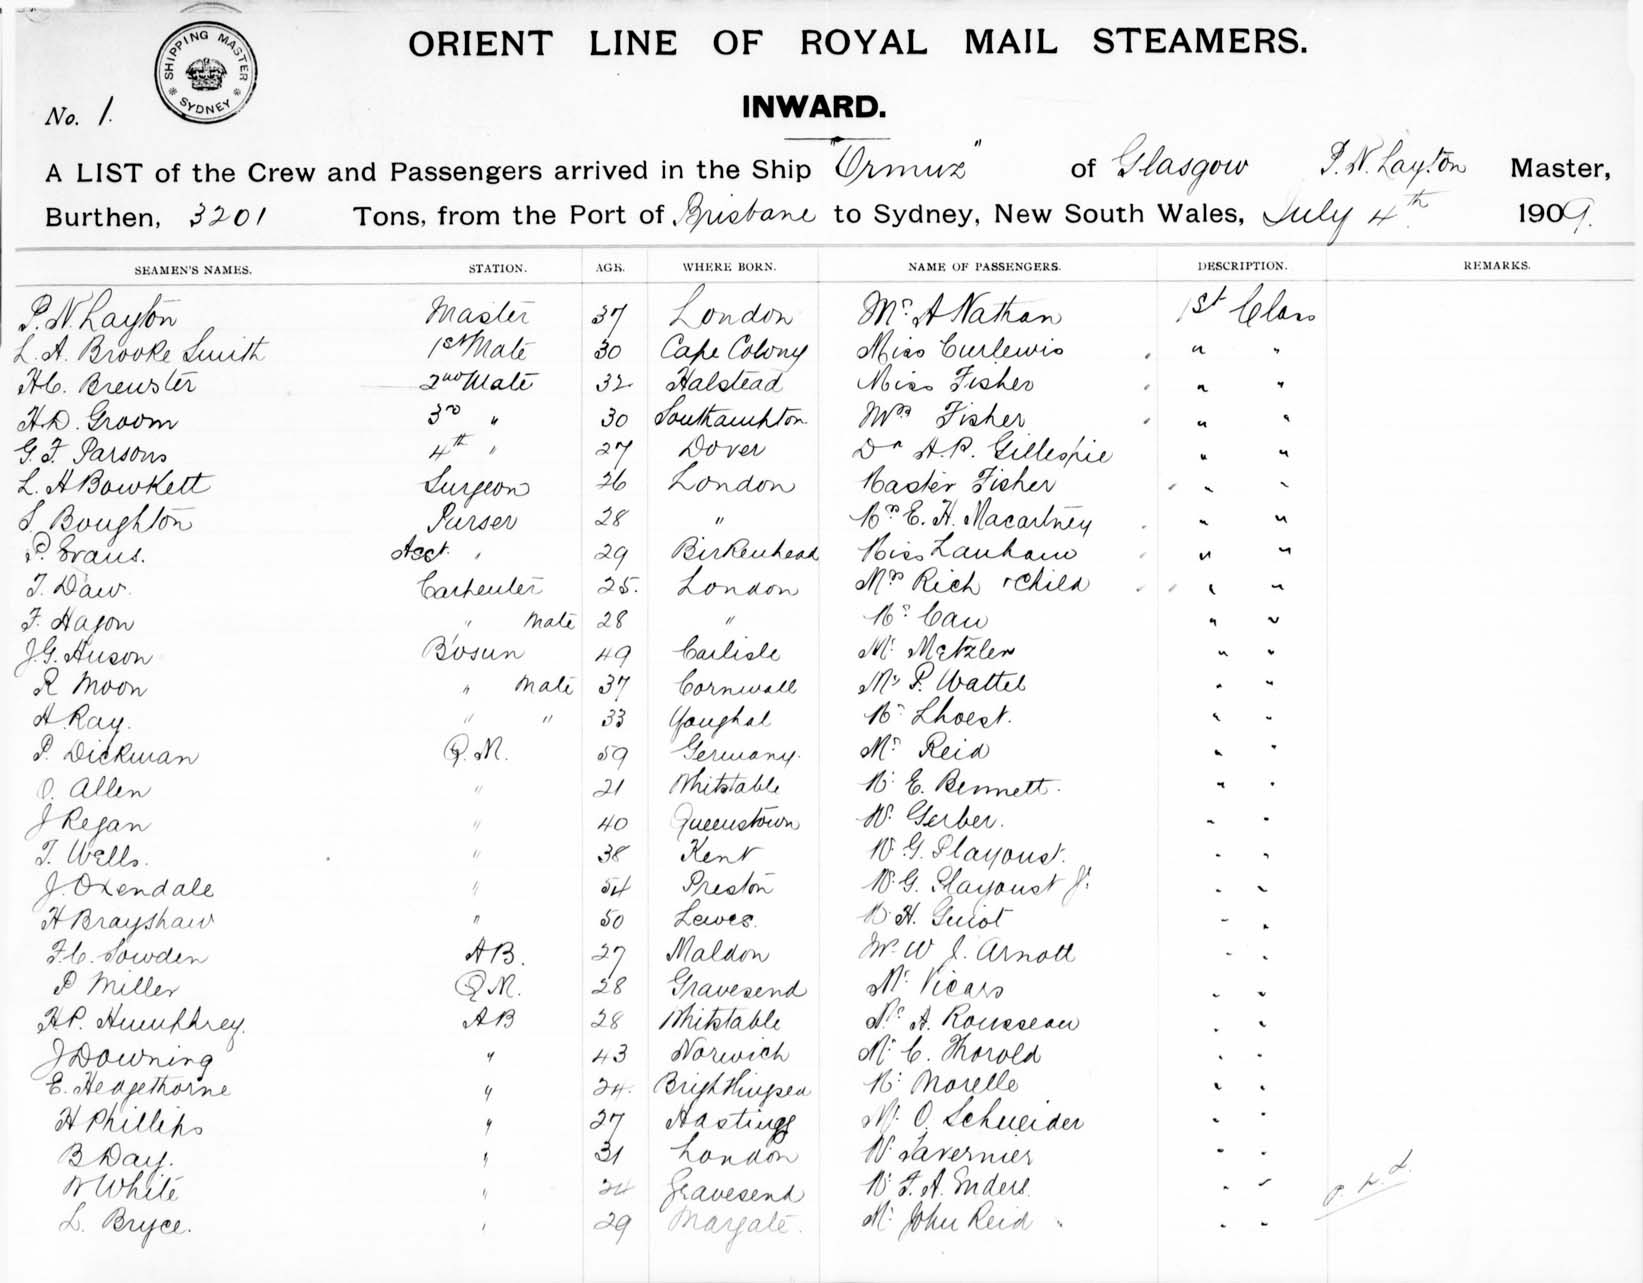 ORIENT LINE OF ROYAL MAIL STEAMERS.
SHIPPING MASTER SYDNEY
No. 1.
INWARD.
A LIST of the Crew and Passengers arrived in the Ship "Ormuz" of Glasgow P. N. Layton Master,
Burthen, 3201 Tons, from the Port of Brisbane to Sydney, New South Wales, July 4th 1909.
SEAMEN'S NAMES. STATION. AGE. WHERE BORN. NAME OF PASSENGERS. DESCRIPTION. REMARKS.
P. N. Layton Master 37 London Mr. A Nathan 1st Class
L. A. Brooke Smith 1st Mate 30 Cape Colony Miss Curlewis " "
H.C. Brewster 2nd Mate 32 Halstead Miss Fisher " "
H.D. Groom 3rd " 30 Southampton Mrs Fisher " "
G F Parsons 4th " 27 Dover Dr A. P. Gillespie " "
L. A Bowkett Surgeon 26 London Master Fisher " "
S. Boughton Purser 28 " E. H. Macartney " "
P. Evans. Asst. " 29 Birkenhead Miss Lanham " "
T. Daw. Carpenter 25. London Mrs Rich & Child " "
F. Hagon " Mate 28 " Mr. " "
J.G. Huson Bosun 49 Carlisle Mr. Metzler " "
R Moon " Mate 37 Cornwall Mr P. Wattel " "
A. Ray. " " 33 Youghal Mr Lhoest. " "
P. Dickman Q.M. 59 Germany. Mr Reid " "
O. Allen " 21 Whitstable Mr. E. Bennett. " "
J Regan " 40 Queenstown Mr. Gerber. " "
T. Wells. " 38 Kent Mr. G. Playoust. " "
J. Oxendale " 54 Preston Mr. G. Playoust Jr " "
H Brayshaw " 50 Lewes. Mr H. Guiot " "
F.C. Sowden AB. 27 Maldon Mr. W. J. Arnott " "
P Miller QM. 28 Gravesend Mr. Vicars " "
H.P. Humphrey. AB 28 Whitstable Mr A. Rousseau " "
J Downing " 43 Norwich Mr C. Thorold " "
E. Hedgethorne " 24. Brightlingsea Mr. Morelle " "
H Phillips " 27 Hastings Mr. O. Schneider " "
B Day. " 31 London Mr. Tavernier " "
W White " 24 Gravesend Mr. F. A. Enders. " "
L. Bryce. " 29 Margate. Mr John Reid " "